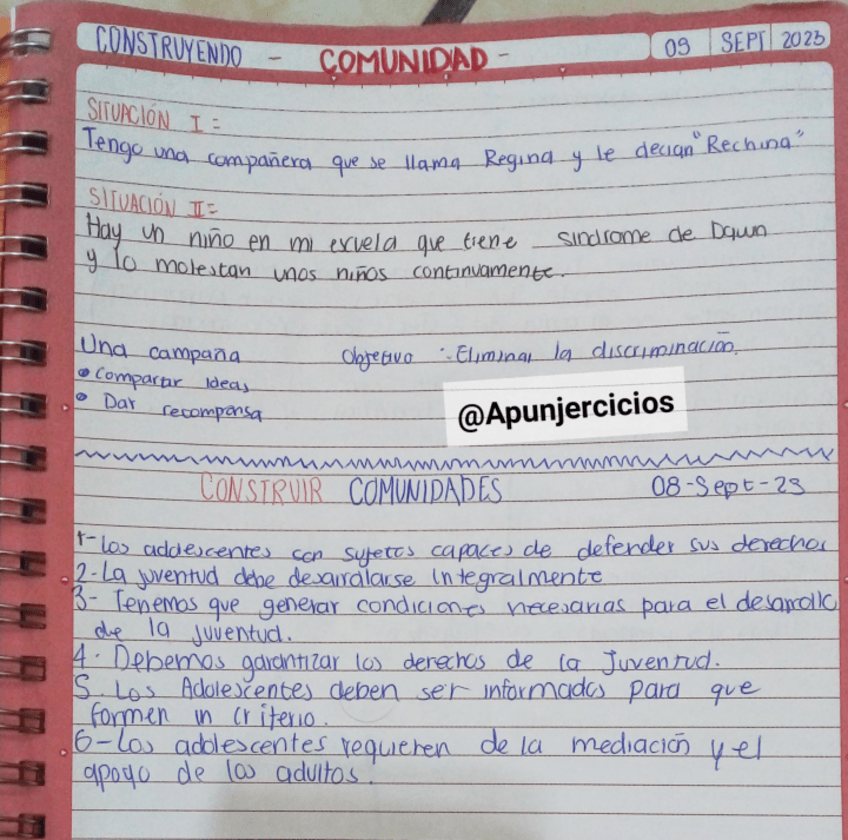 CONSTRUYENDO - COMUNIDAD - 09 SEPT 2023
SITUACIÓN I =
Tengo una compañera que se llama Regina y le decian "Rechina"
SITUACIÓN II=
Hay un niño en mi escuela que tiene sindrome de Dawn
y lo molestan unos niños continuamente.
Una campaña Objetivo : Eliminar la discriminación.
• Compartir Ideas
• Dar recompensa
@Apunjercicios
CONSTRUIR COMUNIDADES 08-Sept-23
1- Los adolescentes son sujetos capaces de defender sus derechos
2- La juventud debe desarrolarse integralmente
3- Tenemos que generar condiciones necesarias para el desarrollo
de la juventud.
4. Debemos garantizar los derechos de la Juventud.
5. Los Adolescentes deben ser informados para que
formen un criterio.
6- Los adolescentes requieren de la mediación y el
apoyo de los adultos.